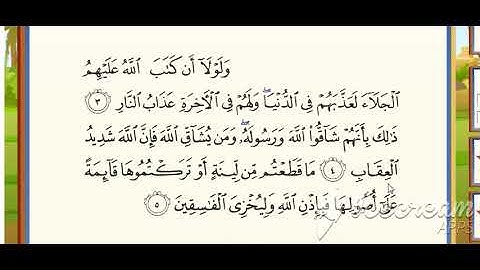 وَلَوْلَآ أَن كَتَبَ ٱللَّهُ عَلَيْهِمُ
ٱلْجَلَآءَ لَعَذَّبَهُمْ فِى ٱلدُّنْيَا ۖ وَلَهُمْ فِى ٱلْـَٔاخِرَةِ عَذَابُ ٱلنَّارِ ٣
ذَٰلِكَ بِأَنَّهُمْ شَآقُّوا۟ ٱللَّهَ وَرَسُولَهُۥ ۖ وَمَن يُشَآقِّ ٱللَّهَ فَإِنَّ ٱللَّهَ شَدِيدُ
ٱلْعِقَابِ ٤ مَا قَطَعْتُم مِّن لِّينَةٍ أَوْ تَرَكْتُمُوهَا قَآئِمَةً
عَلَىٰٓ أُصُولِهَا فَبِإِذْنِ ٱللَّهِ وَلِيُخْزِىَ ٱلْفَٰسِقِينَ ٥
APPS